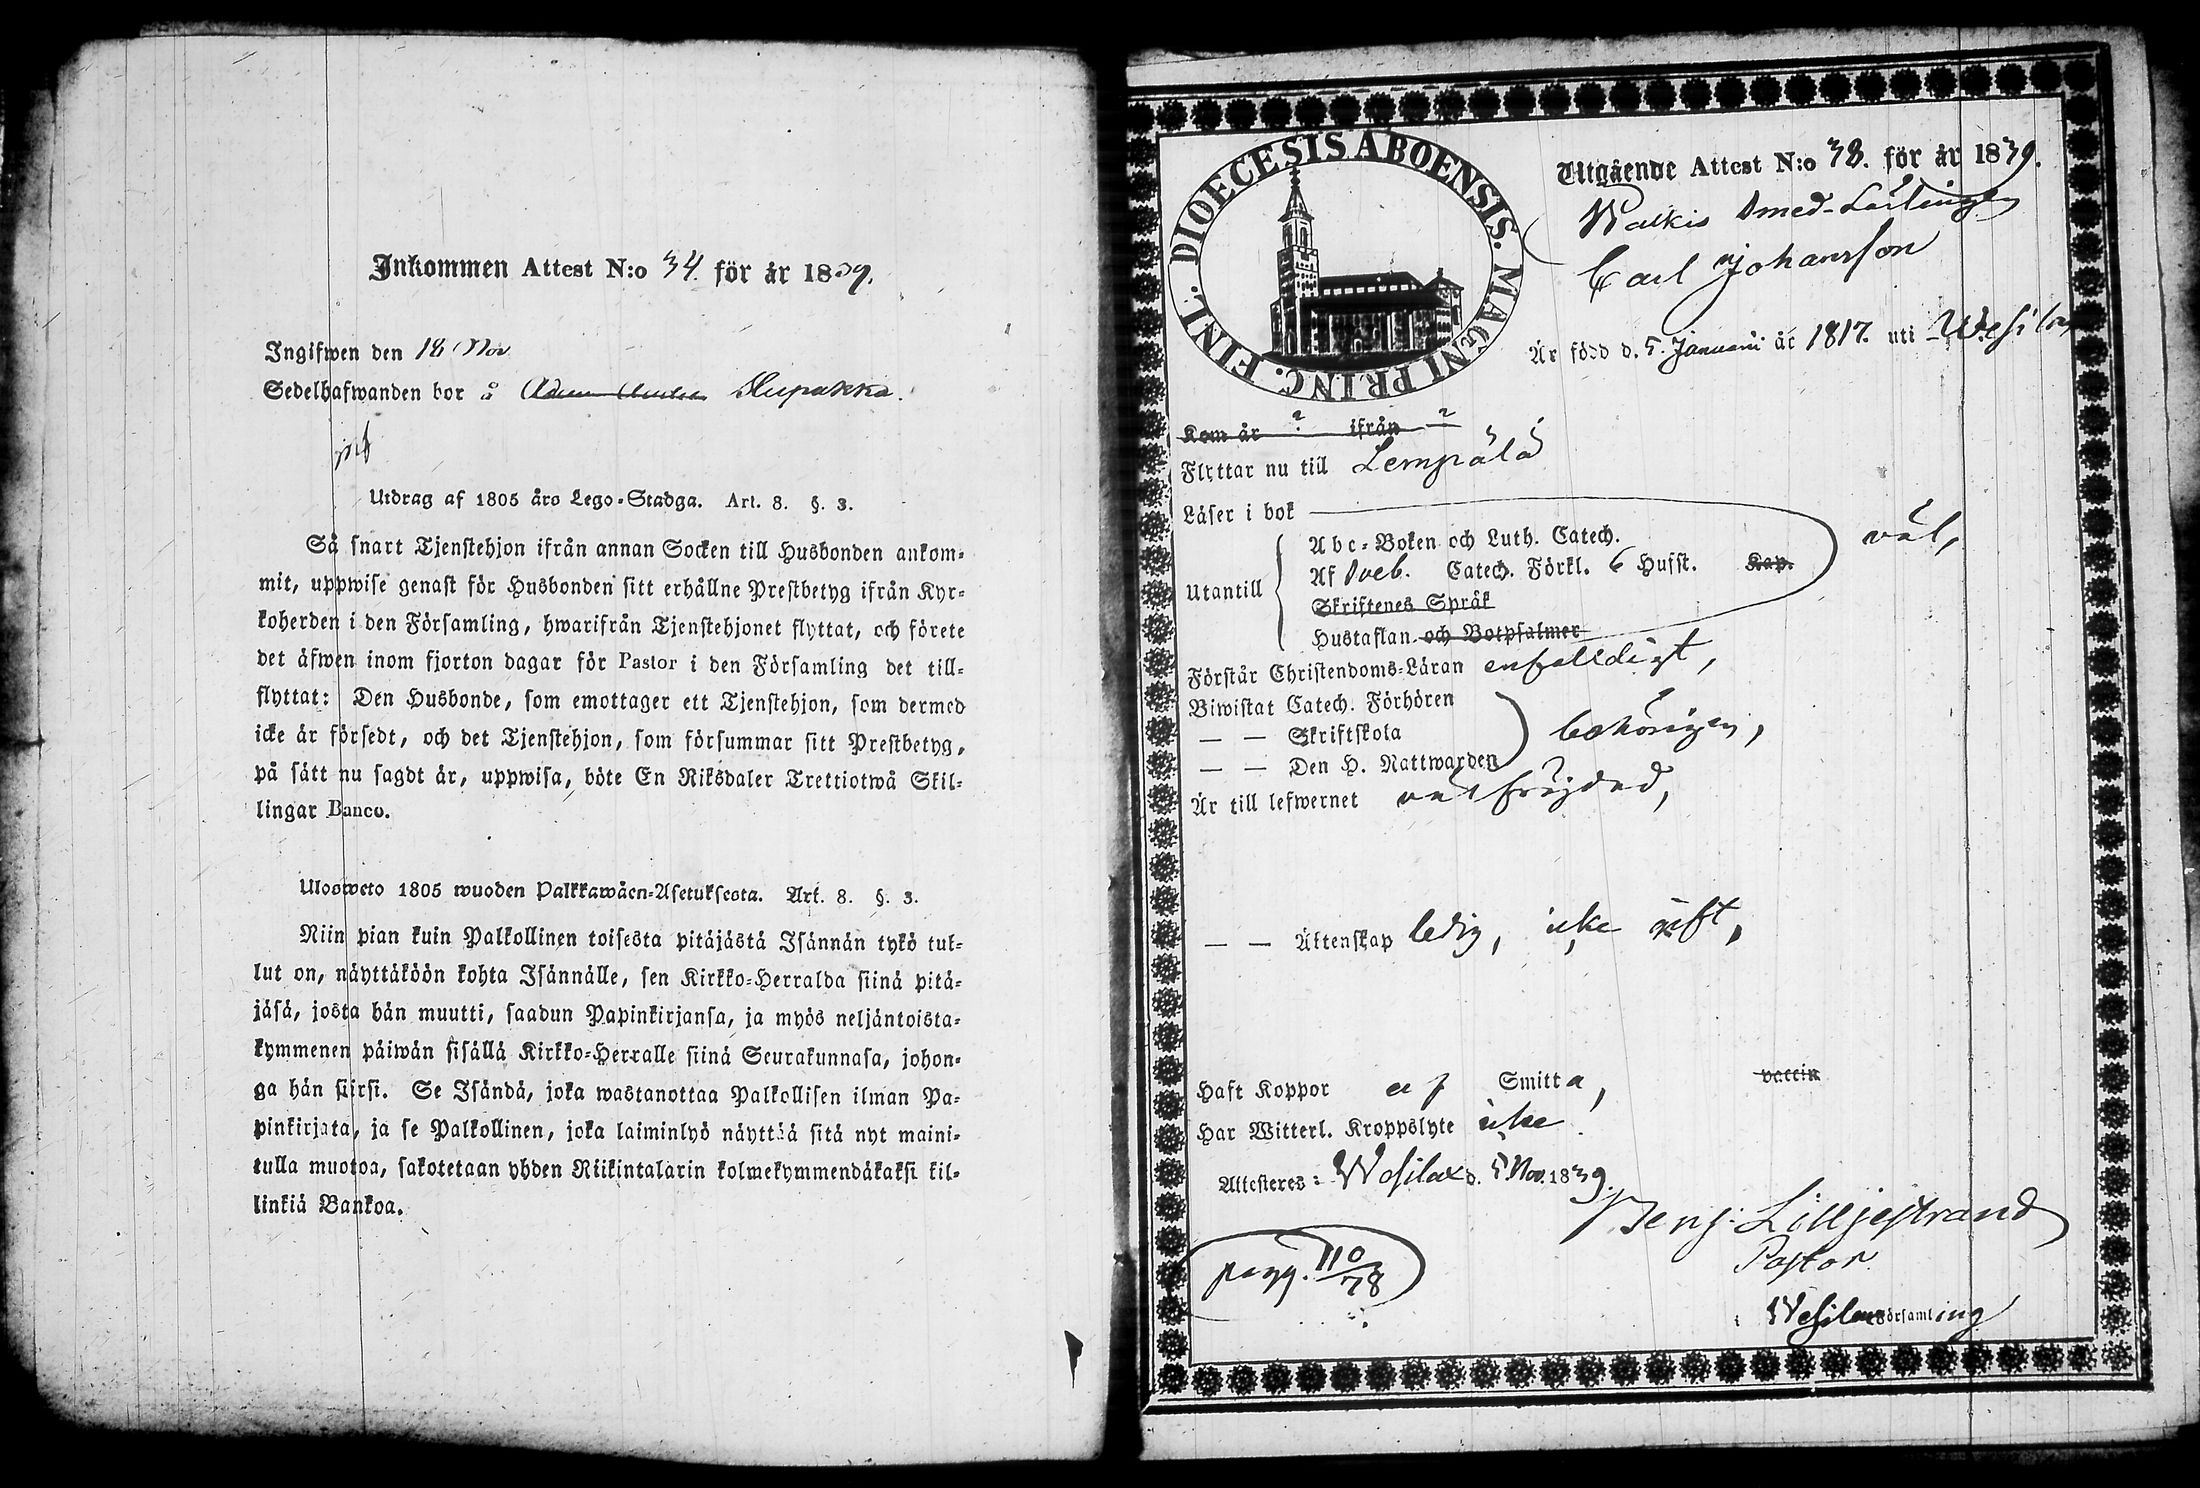 Inkommen Attest N:o 34. för år 1839.
Ingifwen den 18 Nov
Sedelhafwanden bor å
Utdrag af 1805 års Lego-Stadga. Art. 8. §. 3.
Så snart Tjenstehjon ifrån annan Socken till Husbonden ankom-
mit, uppwise genast för Husbonden sitt erhållne Prestbetyg ifrån Kyr-
koherden i den Församling, hwarifrån Tjenstehjonet flyttat, och förete
det äfwen inom fjorton dagar för Pastor i den Församling det till-
flyttat: Den Husbonde, som emottager ett Tjenstehjon, som dermed
icke är försedt, och det Tjenstehjon, som försummar sitt Prestbetyg,
på sätt nu sagdt är, uppwisa, böte En Riksdaler Trettiotwå Skil-
lingar Banco.
Ulosweto 1805 wuoden Palkkawäen-Asetuksesta. Art. 8. §. 3.
Niin pian kuin Palkollinen toisesta pitäjästä Isännän tykö tul-
lut on, näyttäköön kohta Isännälle, sen Kirkko-Herralda siinä pitä-
jäsä, josta hän muutti, saadun Papinkirjansa, ja myös neljäntoista-
kymmenen päiwän sisällä Kirkko-Herralle siinä Seurakunnasa, johon-
ga hän siirsi. Se Isändä, joka wastanottaa Palkollisen ilman Pa-
pinkirjata, ja se Palkollinen, joka laiminlyö näyttää sitä nyt maini-
tulla muotoa, sakotetaan yhden Riikintalarin kolmekymmendäkaksi kil-
linkiä Bankoa.
DIOECESIS ABOENSIS. MAGNI PRINC. FINL.
Utgående Attest N:o 38. för år 1839.
Walkis Smed-Lärlingen
Carl Johansson
Är född d. 5. Januarii år 1817. uti Wesilax
Kom år ? ifrån ?
Flyttar nu till Lempälä
Läser i bok
Abc-Boken och Luth. Catech.
väl,
Utantill
Af Sveb. Catech. Förkl. 6 Hufst. Kap.
Skriftenes Språk
Hustaflan och Botpsalmer
Förstår Christendoms-Läran enfaldigt,
Biwistat Catech. Förhören
— — Skriftskola
behörigen,
— — Den H. Nattwarden
Är till lefwernet välfrejdad,
— — Äktenskap ledig, icke gift,
Haft Koppor af Smitta, vaccin
Har Witterl. Kroppslyte icke.
Attesteres: Wesilax d. 5 Nov. 1839.
Benj: Lilljestrand
Pastor
pagg. 110/78
i Wesilax Församling